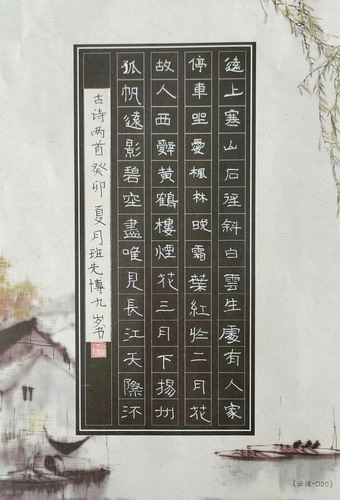 遠上寒山石徑斜白雲生處有人家
停車坐愛楓林晚霜葉紅於二月花
故人西辭黃鶴樓煙花三月下揚州
孤帆遠影碧空盡唯見長江天際流
古诗两首 癸卯夏月班先博九岁书
D20